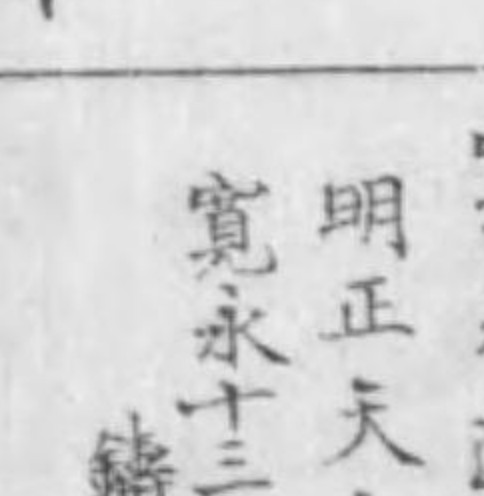 明正天
寛永十三
鑄